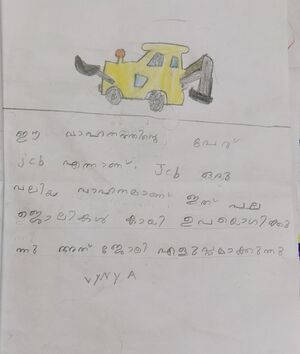 ഈ വാഹനത്തിന്റെ പേര്
jcb എന്നാണ്. Jcb ഒരു
വലിയ വാഹനമാണ് ഇത് പല
ജോലികൾ ക്കായി ഉപയോഗിക്കു
ന്നു അത് ജോലി എളുപ്പമാക്കുന്നു
VYNYA